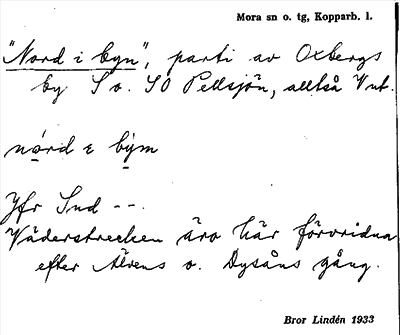 Mora sn o. tg, Kopparb. l.
"Nord i byn", parti av Oxbergs
by S o. SO Pellsjön, alltså V ut.
nọrd ε bỵm
Jfr Sud --.
Väderstrecken äro här förvridna
efter Älvens o. Dysåns gång.
Bror Lindén 1933